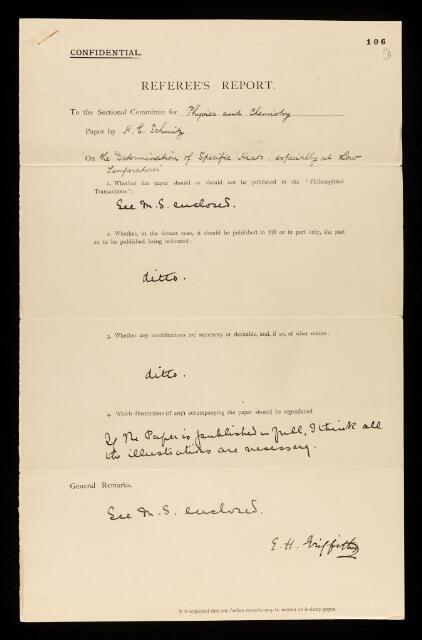 106
CONFIDENTIAL.
REFEREE'S REPORT.
To the Sectional Committee for Physics and Chemistry
Paper by H. E. Schmitz.
"On the Determination of Specific Heats, especially at Low
Temperatures"
1. Whether the paper should or should not be published in the "Philosophical
Transactions":
See M.S. enclosed.
2. Whether, in the former case, it should be published in full or in part only, the part
so to be published being indicated:
ditto.
3. Whether any modifications are necessary or desirable, and, if so, of what nature:
ditto.
4. Which illustrations (if any) accompanying the paper should be reproduced
If the Paper is published in full, I think all
the illustrations are necessary.
General Remarks.
See M.S. enclosed.
E. H. Griffiths
It is requested that any further remarks may be written on foolscap paper.